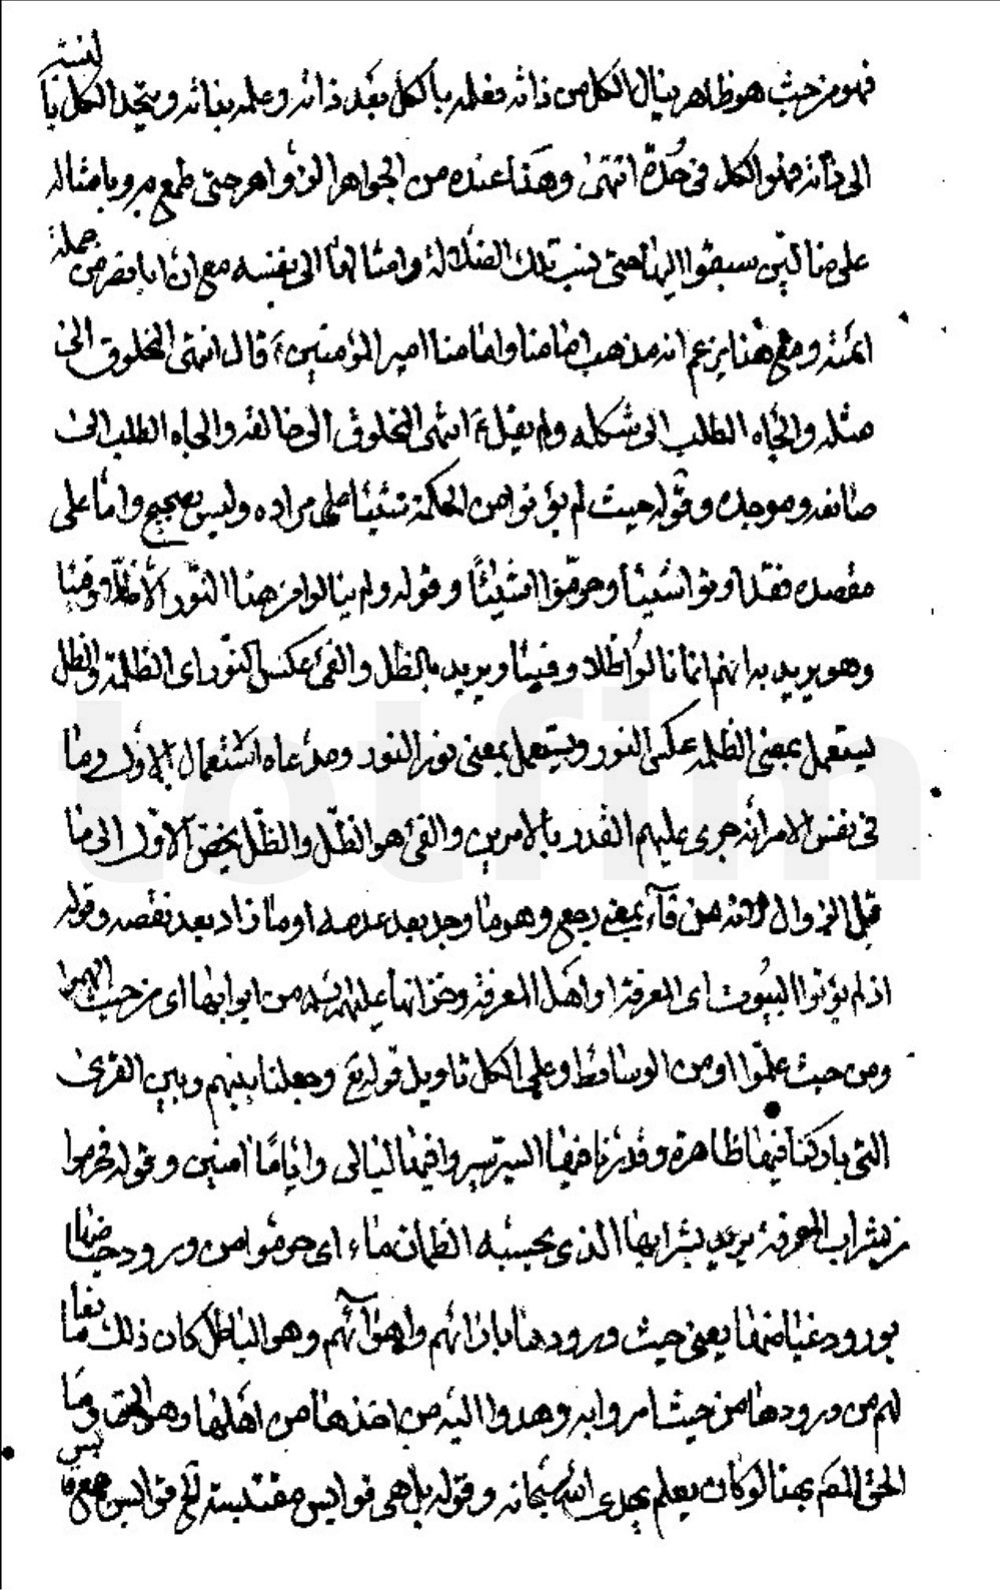 فهو من حيث هو ظاهر ينال الكل من ذاته فعلمه بالكل بعد ذاته وعلمه بذاته ويتحد الكل بالنسبة
الى ذاته فهو الكل فى حدة انتهى وهذا عنده من الجواهر الزواهر حتى طمع به وبامثاله
على ضالين سبقوا اليها حتى نسب تلك الضلالة وامثالها الى نفسه مع ان ابا نصر من جملة
ائمته ومع هذا يزعم انه مذهب امامنا وامامنا امير المؤمنين ع قال انتهى المخلوق الى
مثله والجاه الطلب الى شكله ولم يقل ع انتهى المخلوق الى خالقه والجاه الطلب الى
صانعه وموجده وقوله حيث لم يؤتوا من الحكمة شيئا على مراده وليس بصحيح واما على
مقصده فقد اوتوا شيئا وحرّموا شيئًا وقوله ولم ينالوا من هذا النور الا ظلا وفيئا
وهو يريد به انهم انما نالوا ظلا وفيئا ويريد بالظل والفئ عكس النور اى الظلمة والظل
يستعمل بمعنى الظلمة عكس النور ويستعمل بمعنى نور النور ومدعاه استعمال الاول وما
فى نفس الامر انه جرى عليهم القدر بالامرين والفئ هو الظل والظل يخص الاول الى ما
قبل الزوال لانه من فآء بمعنى رجع وهو ما وجد بعد عدمه او ما زاد بعد نقصه وقوله
اذ لم يؤتوا البيوت اى المعرفة او اهل المعرفة وخزانها عليهم السلام من ابوابها اى من حيث الهموا
ومن حيث علّموا او من الوسائط وعلى الكل تاويل قوله تع وجعلنا بينهم وبين القرى
التى باركنا فيها قرى ظاهرة وقدرنا فيها السير سيروا فيها ليالى واياما امنين وقوله فحرموا
من شراب المعرفة يريد بشرابها الذى يحسبه الظمان ماء اى حرموا من ورود حياضها
بورود غياضها يعنى حيث ورودها بارائهم واهوآئهم وهو الباطل كان ذلك مانعا
لهم من ورودها من حيث امروا به وهدوا اليه من اخذها من اهلها وهو الحق وما
الحق لهم بهذا لو كان يعلم بجدع الله سبحانه وقوله بل هى قوابس مقتبسة الخ قوابس جمع قابس